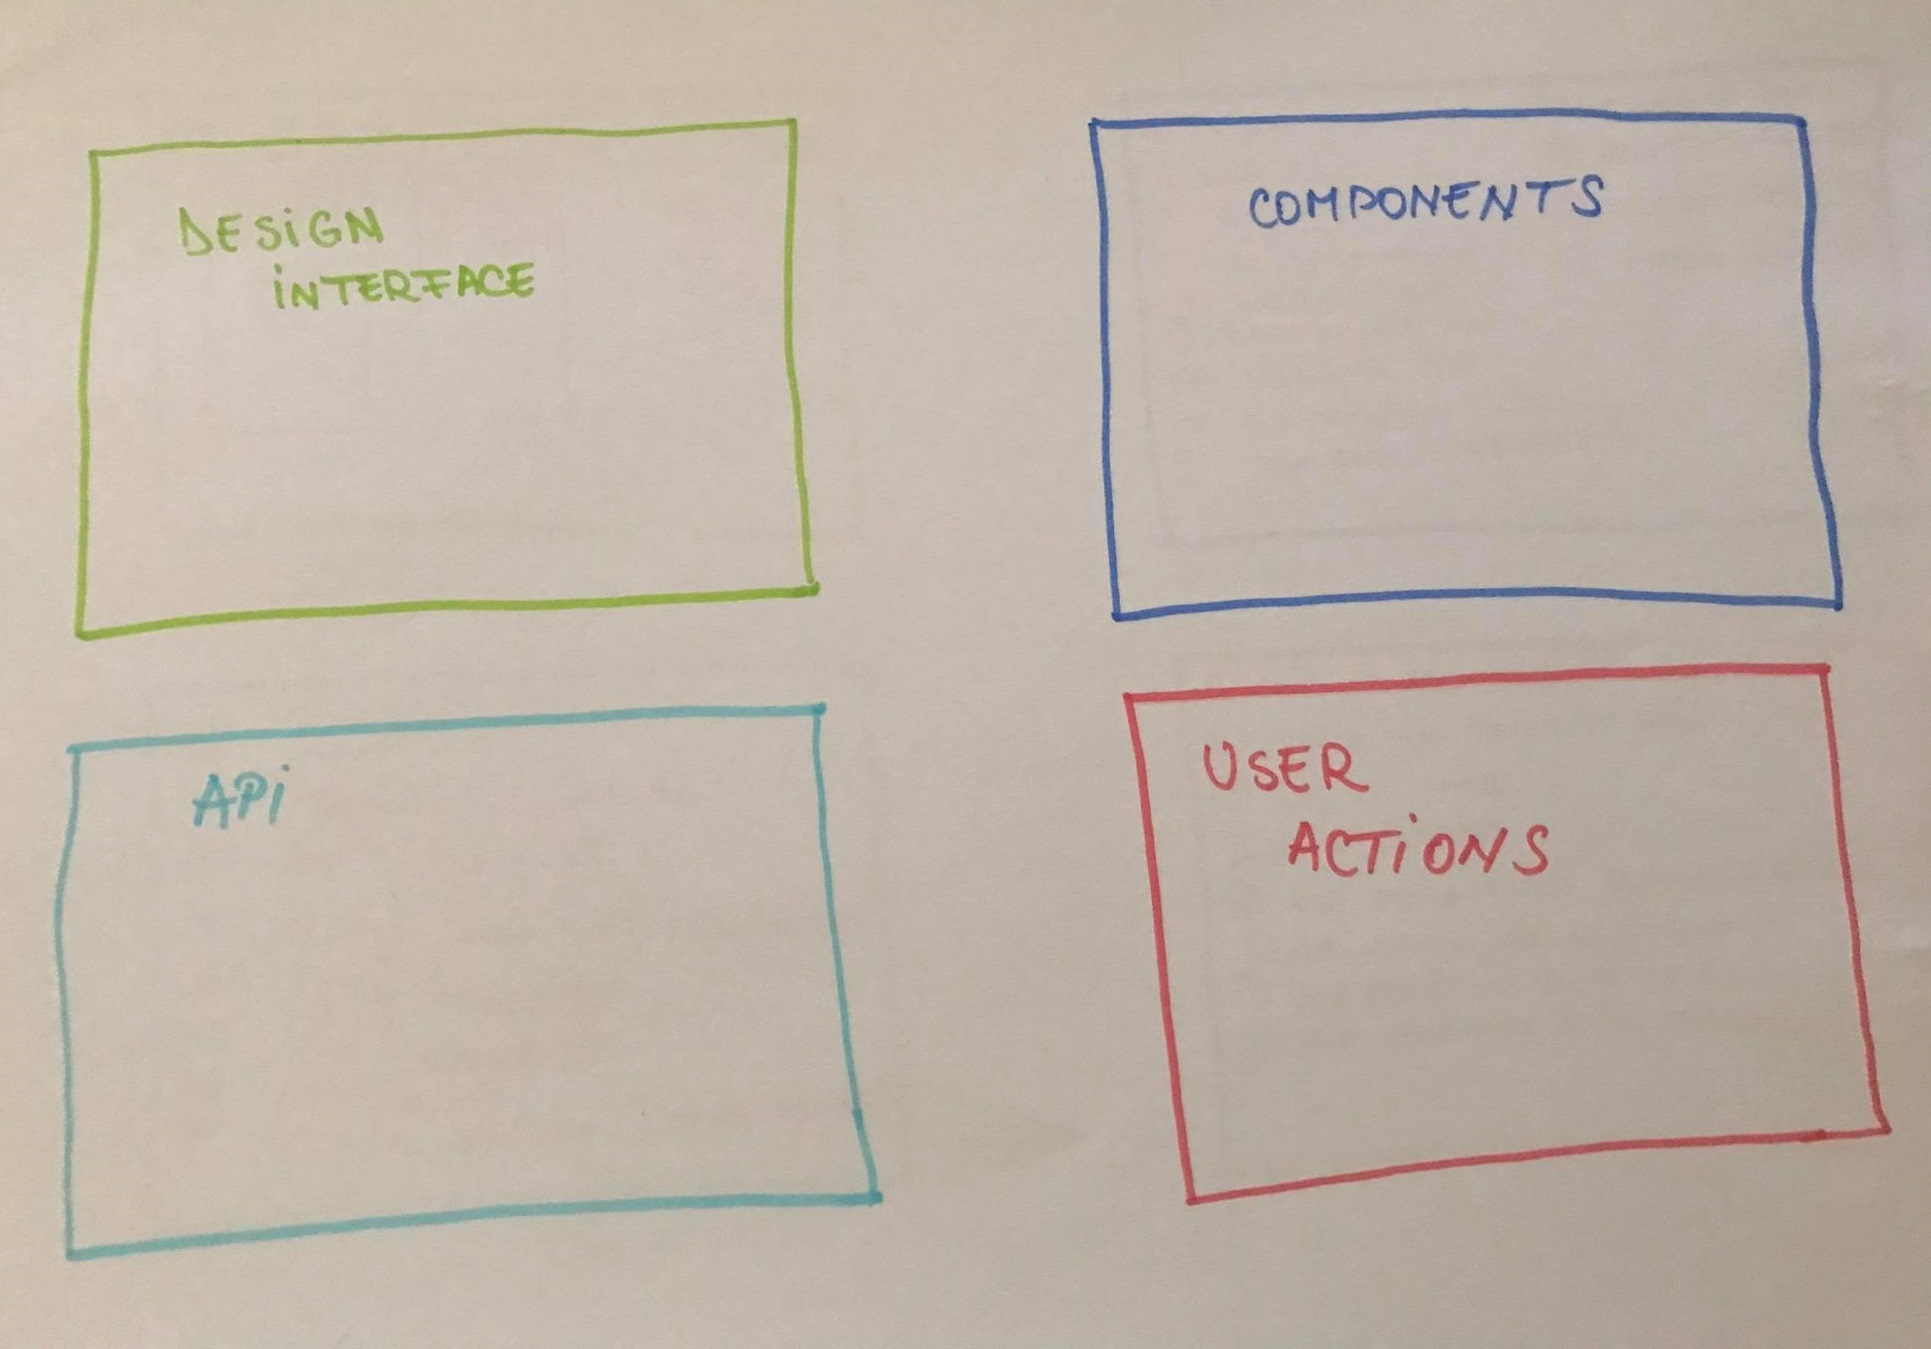 DESiGN
iNTERFACE
COMPONENTS
APi
USER
ACTiONS